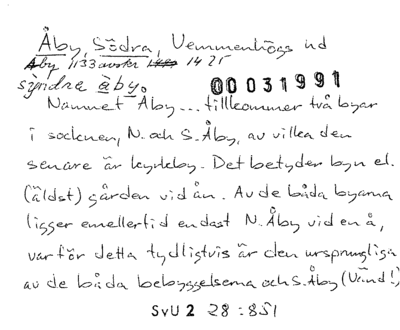 Åby, Södra, Vemmenhögs hd
Aby 1133 avskr 1425
syndra àby.
00031991
Namnet Åby... tillkommer två byar
i socknen, N. och S. Åby, av vilka den
senare är kyrkby. Det betyder byn el.
(äldst) gården vid ån. Av de båda byarna
ligger emellertid endast N. Åby vid en å,
varför detta tydligtvis är den ursprungliga
av de båda bebyggelserna och S. Åby (Vänd!)
SvU 2 28:851